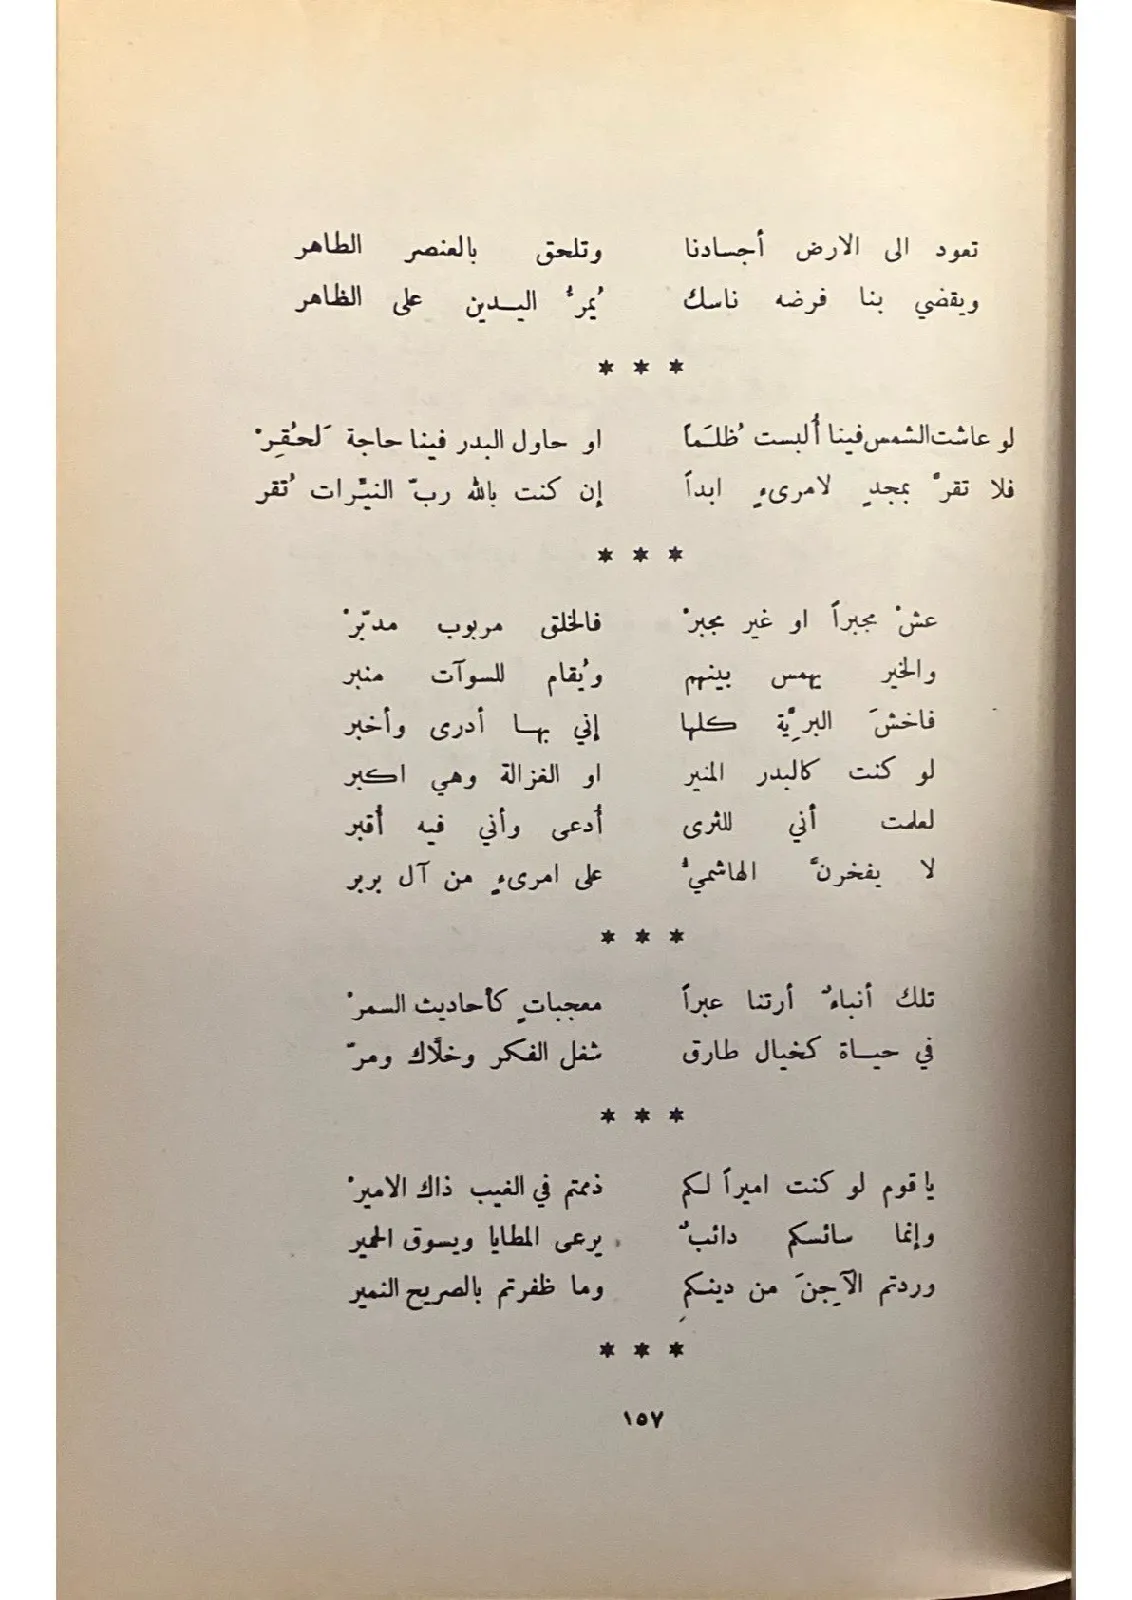 تعود الى الارض أجسادنا وتلحق بالعنصر الطاهر
ويقضي بنا فرضه ناسك يُمرُّ اليـدين على الظاهر
* * *
لو عاشت الشمس فينا أُلبست ُظلَماً او حاول البدر فينا حاجة َلحُقِرْ
فلا تقرَّ بمجدٍ لامرىءٍ ابداً إن كنت بالله ربّ النيِّرات ُتقر
* * *
عشْ مجبراً او غير مجبرْ فالخلق مربوب مدبّرْ
والخير يهمس بينهم ويُقام للسوآت منبر
فاخشَ البرِيَّة كلها إني بهـا أدرى وأخبر
لو كنت كالبدر المنير او الغزالة وهي اكبر
لعلمت أني للثرى أُدعى وأني فيه أُقبر
لا يفخرنَّ الهاشميُّ على امرىءٍ من آل بربر
* * *
تلك أنباءٌ أرتنا عبراً معجباتٍ كأحاديث السمرْ
في حيـاة كخيال طارق شغل الفكر وخلَّاك ومرّ
* * *
يا قوم لو كنت اميراً لكم ذممتم في الغيب ذاك الاميرْ
وإنما سائسكم دائبٌ يرعى المطايا ويسوق الحمير
وردتم الآجِنَ من دينكمِ وما ظفرتم بالصريح النمير
* * *
١٥٧